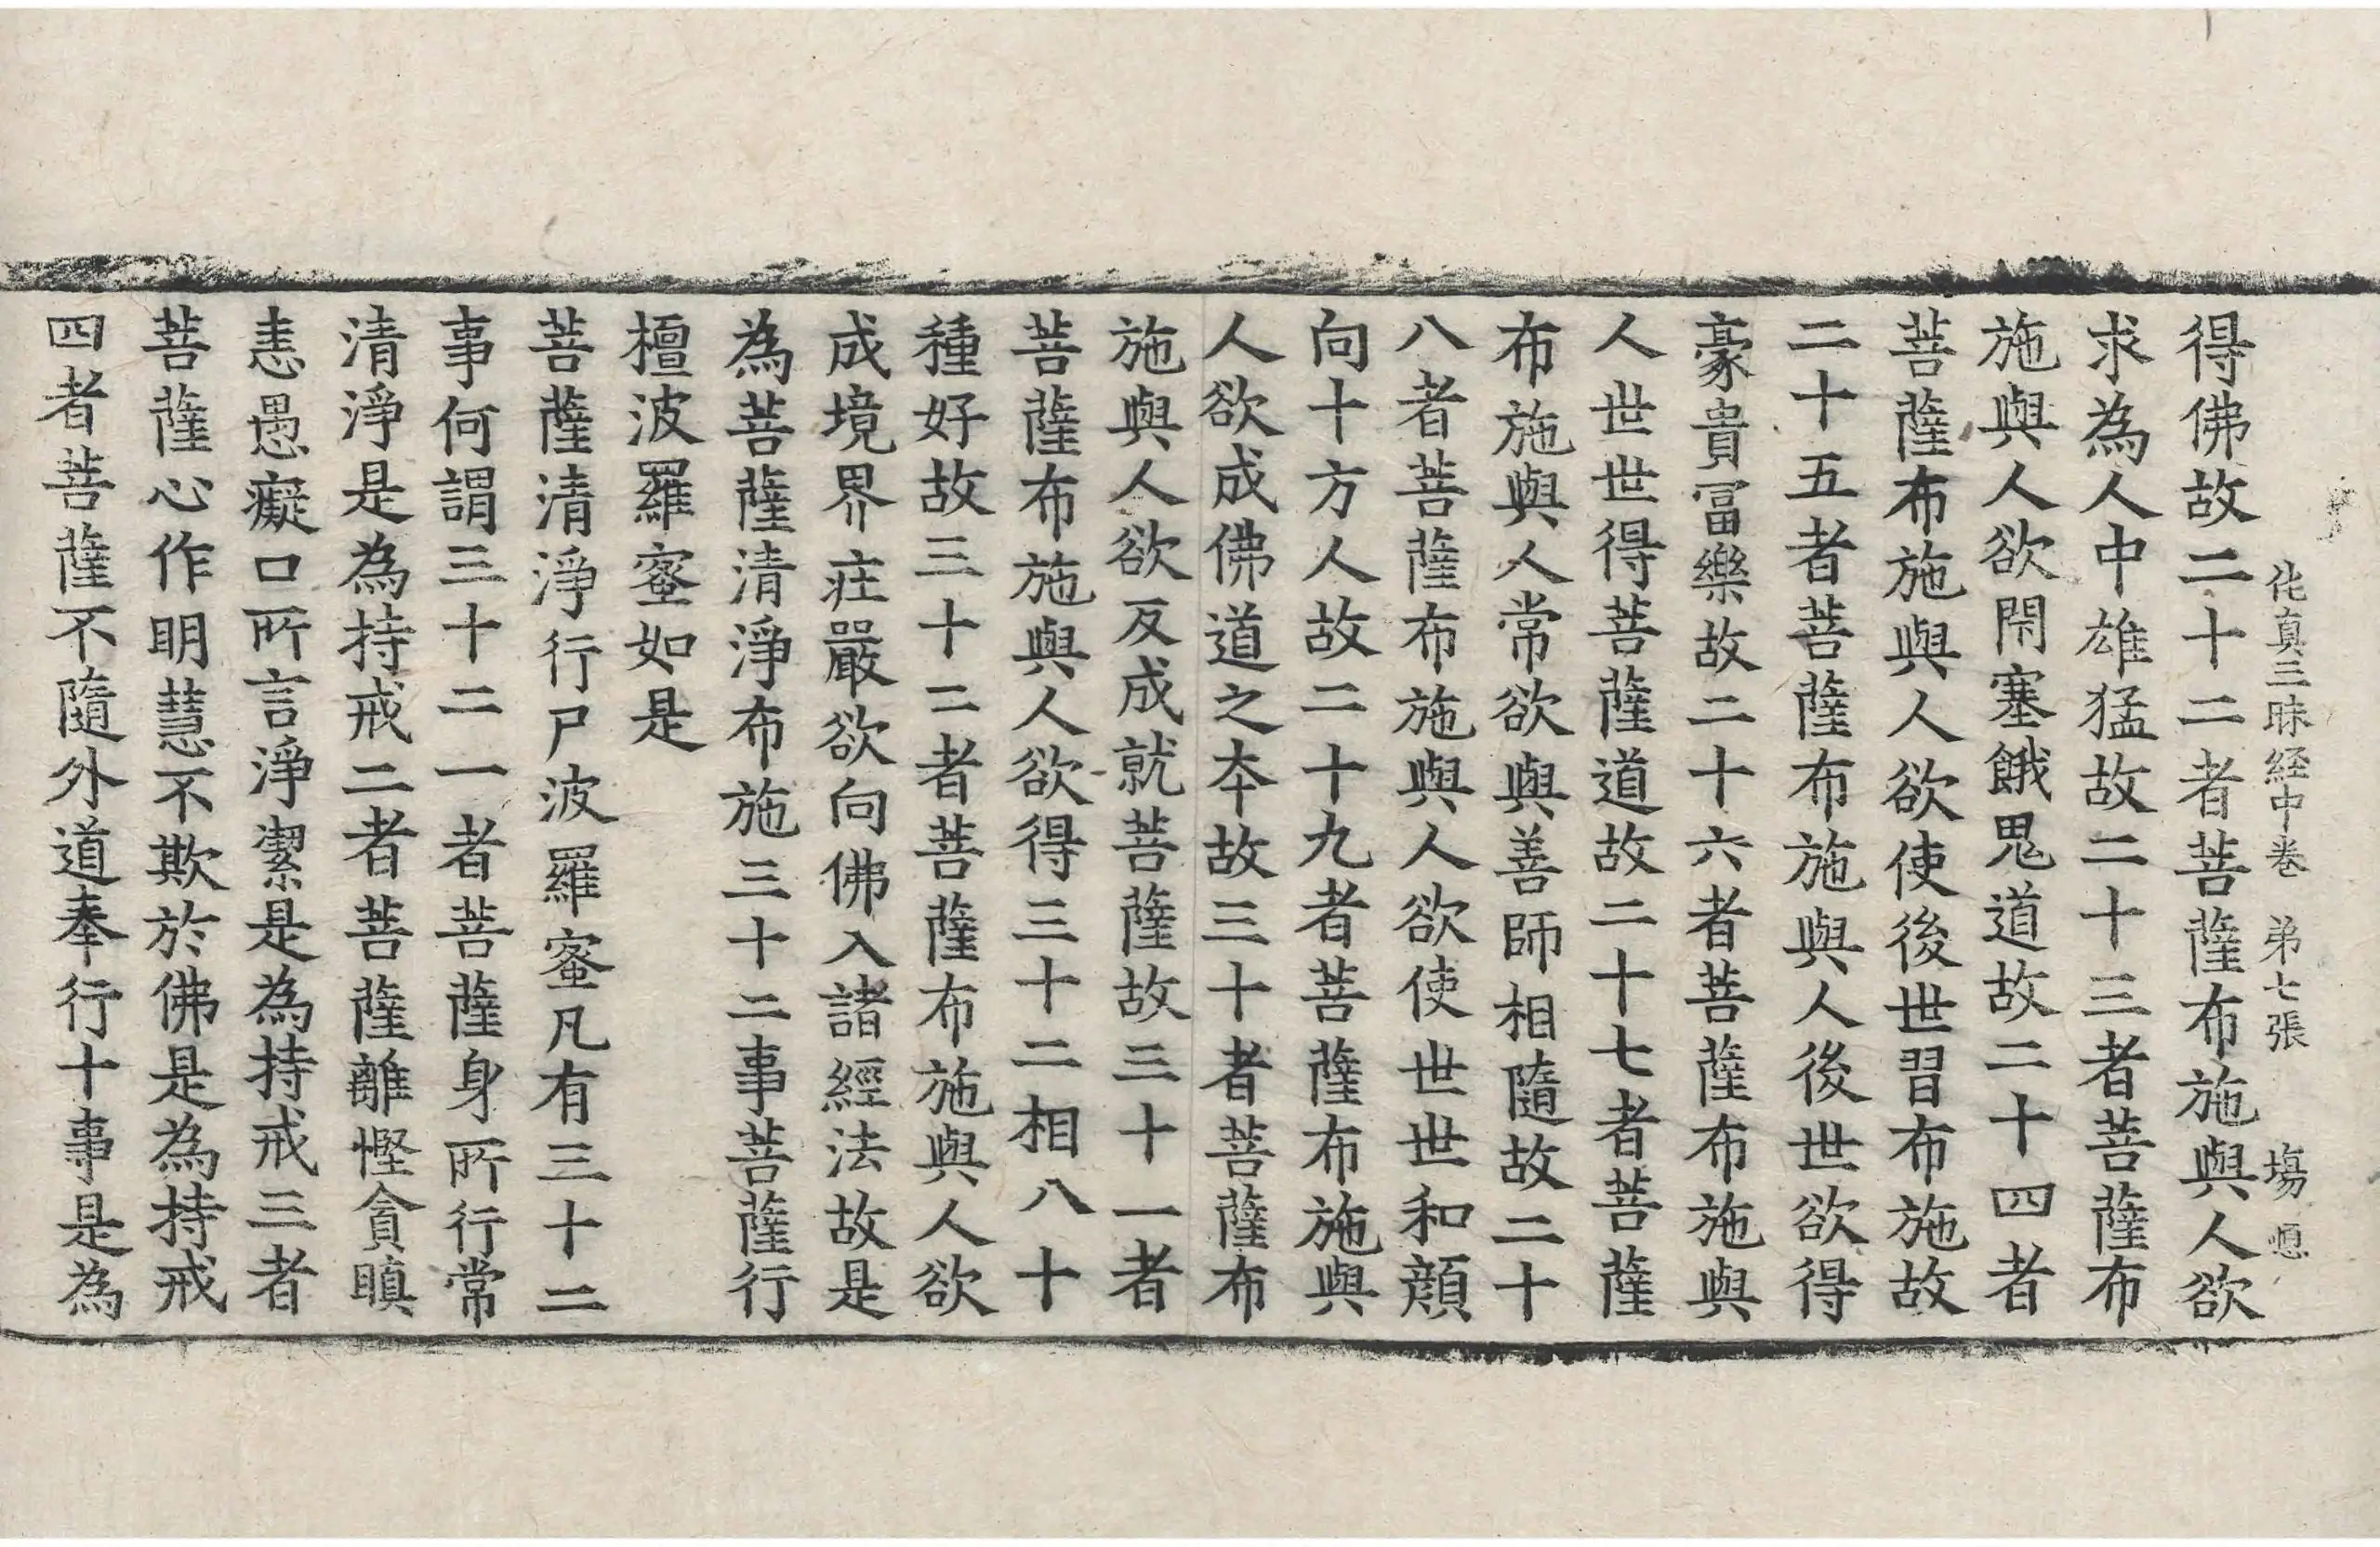 伅真三昧経中卷 弟七張 塲
得佛故二十二者菩薩布施與人欲
求為人中雄猛故二十三者菩薩布
施與人欲閇塞餓鬼道故二十四者
菩薩布施與人欲使後世習布施故
二十五者菩薩布施與人後世欲得
豪貴冨樂故二十六者菩薩布施與
人世世得菩薩道故二十七者菩薩
布施與人常欲與善師相隨故二十
八者菩薩布施與人欲使世世和顔
向十方人故二十九者菩薩布施與
人欲成佛道之夲故三十者菩薩布
施與人欲反成就菩薩故三十一者
菩薩布施與人欲得三十二相八十
種好故三十二者菩薩布施與人欲
成境界莊嚴欲向佛入諸經法故是
為菩薩清淨布施三十二事菩薩行
檀波羅蜜如是
菩薩清淨行尸波羅蜜凡有三十二
事何謂三十二一者菩薩身所行常
清淨是為持戒二者菩薩離慳貪瞋
恚愚癡口所言淨潔是為持戒三者
菩薩心作明慧不欺於佛是為持戒
四者菩薩不隨外道奉行十事是為